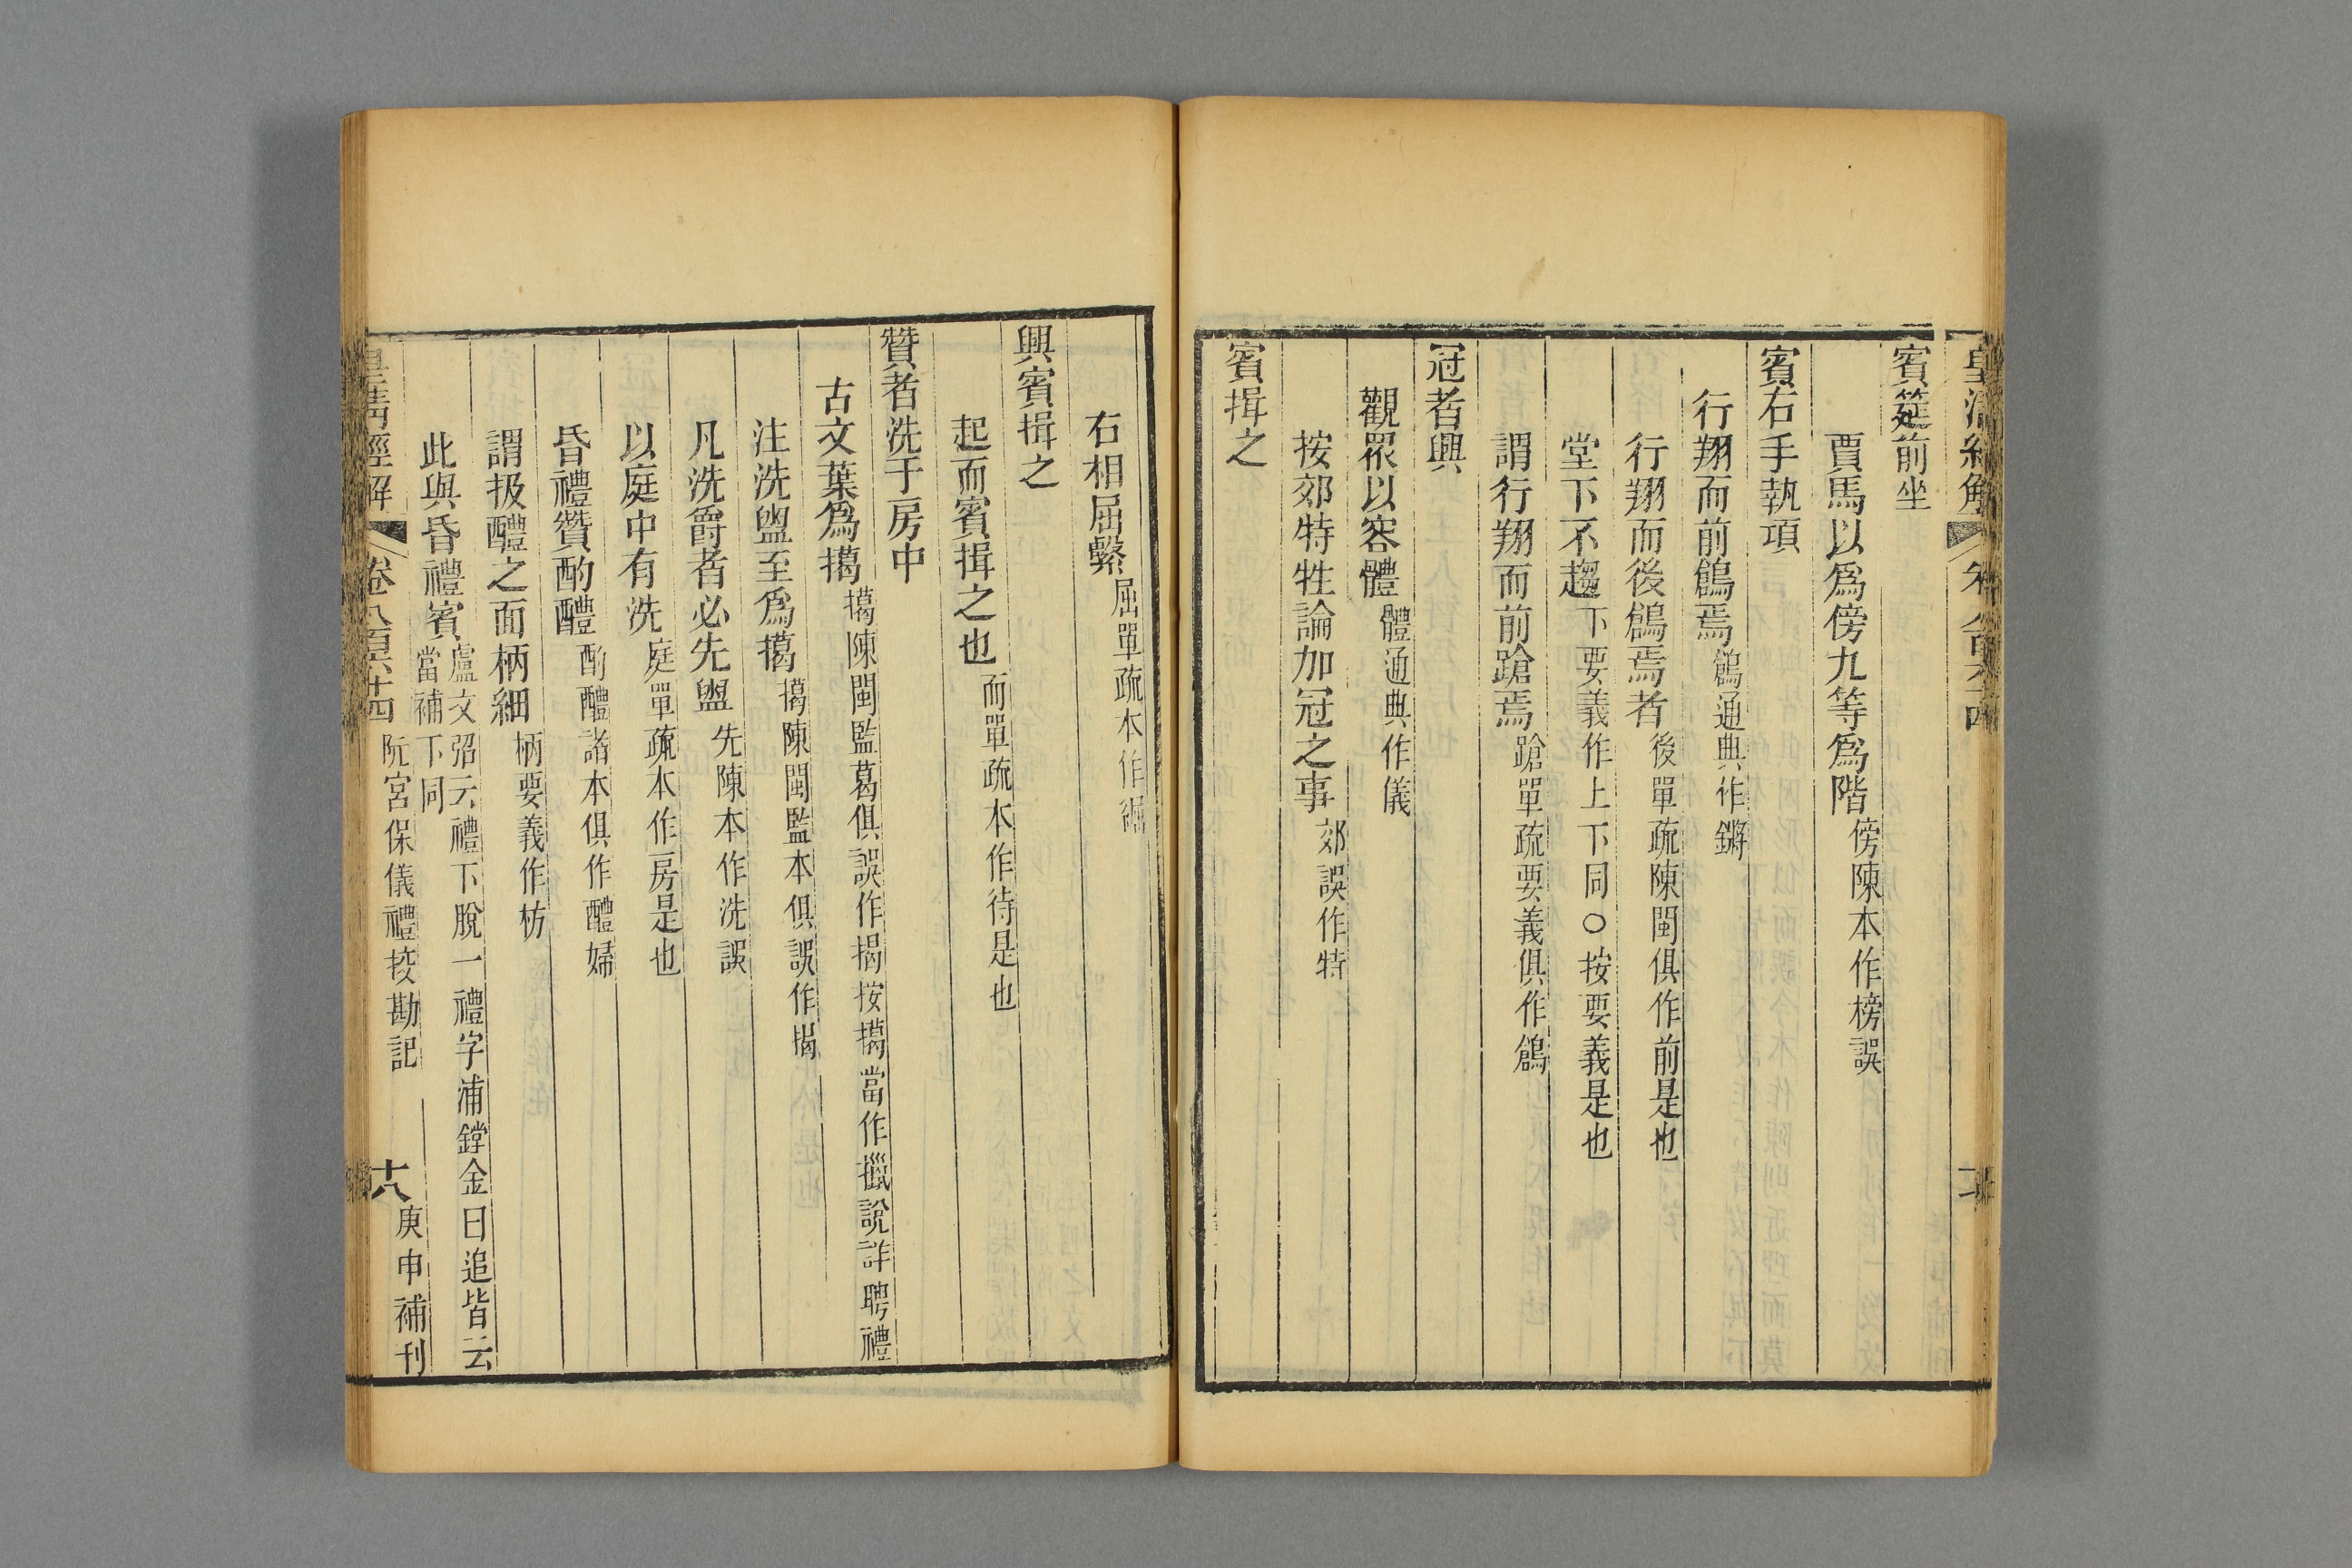 賓筵前坐
賈馬以爲傍九等爲階傍陳本作榜誤
賓右手執項
行翔而前鶬焉鶬通典作鏘
行翔而後鶬焉者後單疏陳閩俱作前是也
堂下不趨下要義作上下同○按要義是也
謂行翔而前蹌焉蹌單疏要義俱作鶬
冠者興
觀眾以容體體通典作儀
按郊特牲論加冠之事郊誤作特
賓揖之
右相屈繫屈單疏本作
興賓揖之
起而賓揖之也而單疏本作待是也
贊者洗于房中
古文葉爲擖擖陳閩監葛俱誤作揭按擖當作擸說詳聘禮
注洗盥至爲擖擖陳閩監本俱誤作揭
凡洗爵者必先盥先陳本作洗誤
以庭中有洗庭單疏本作房是也
昏禮贊酌醴酌醴諸本俱作醴婦
謂扱醴之面柄細柄要義作枋
此與昏禮賓盧文弨云禮下脫一禮字浦鏜金曰追皆云當補下同
皇清經解 卷八百六十四 阮宮保儀禮挍勘記 十八 庚申補刊